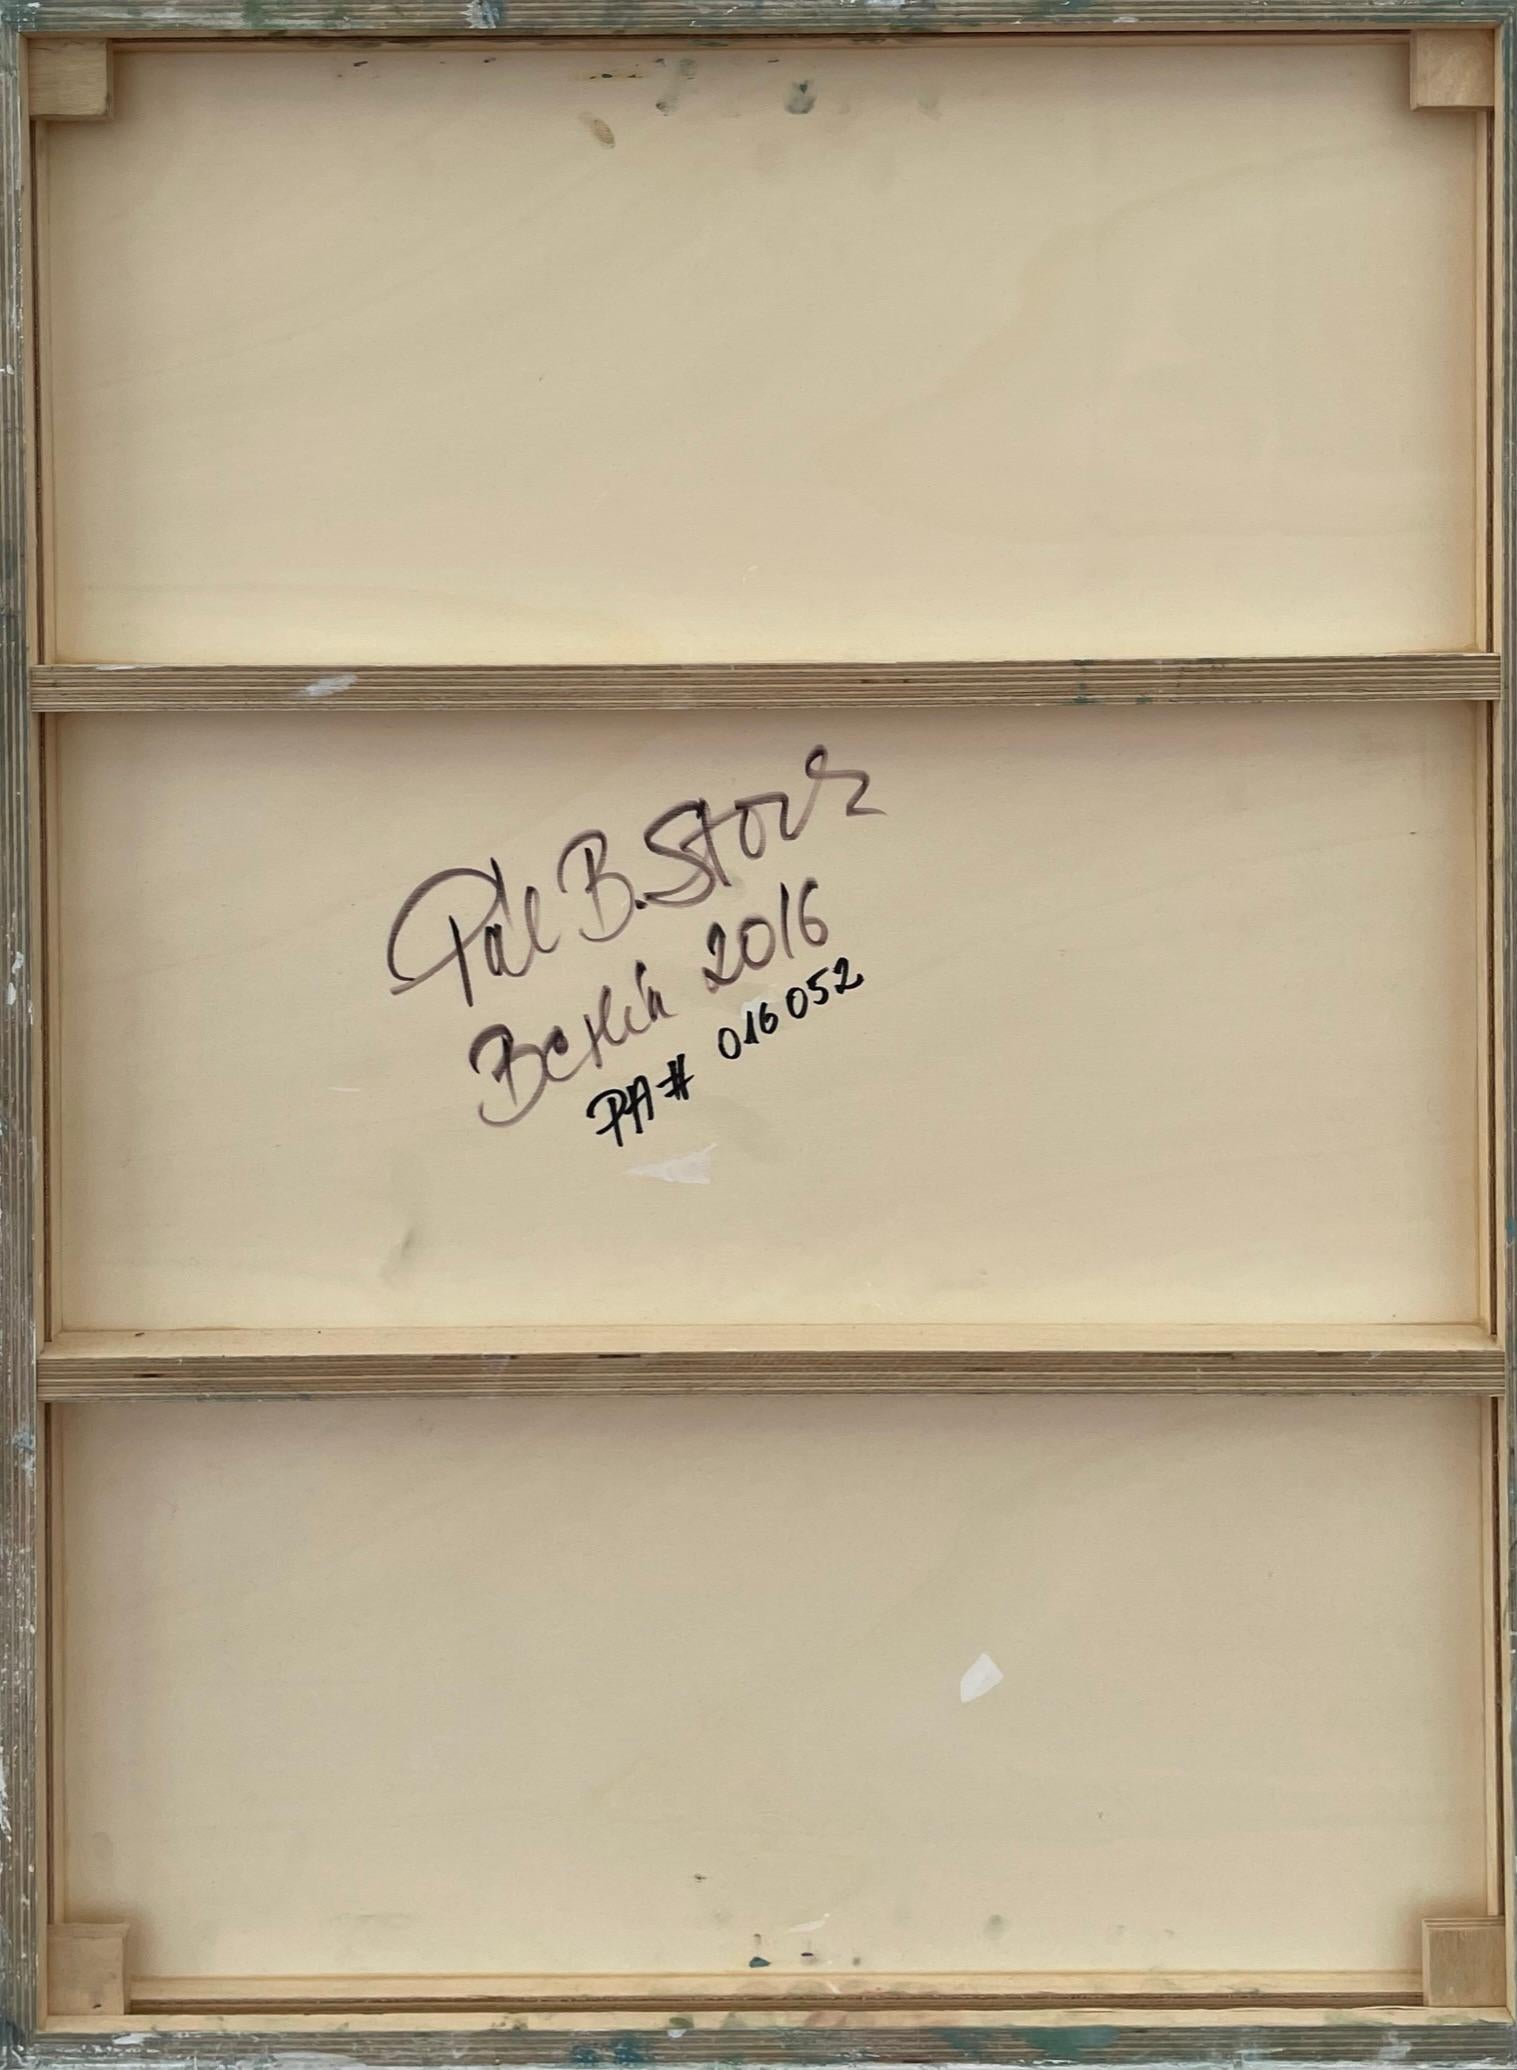 Pál B. Stock
Berlin 2016
PA# 016052